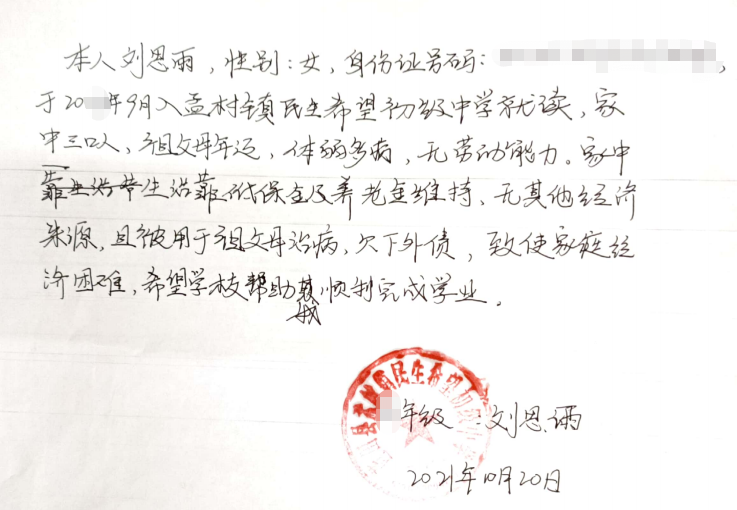 本人刘恩雨，性别：女，身份证号码：
于20 年9月入孟村镇民生希望初级中学就读，家
中三口人，祖父母年迈，体弱多病，无劳动能力。家中
生活靠低保金及养老金维持、无其他经济
来源，且被用于祖父母治病，欠下外债，致使家庭经
济困难，希望学校帮助我顺利完成学业。
民生希望初级
年级：刘恩雨
2021年10月20日